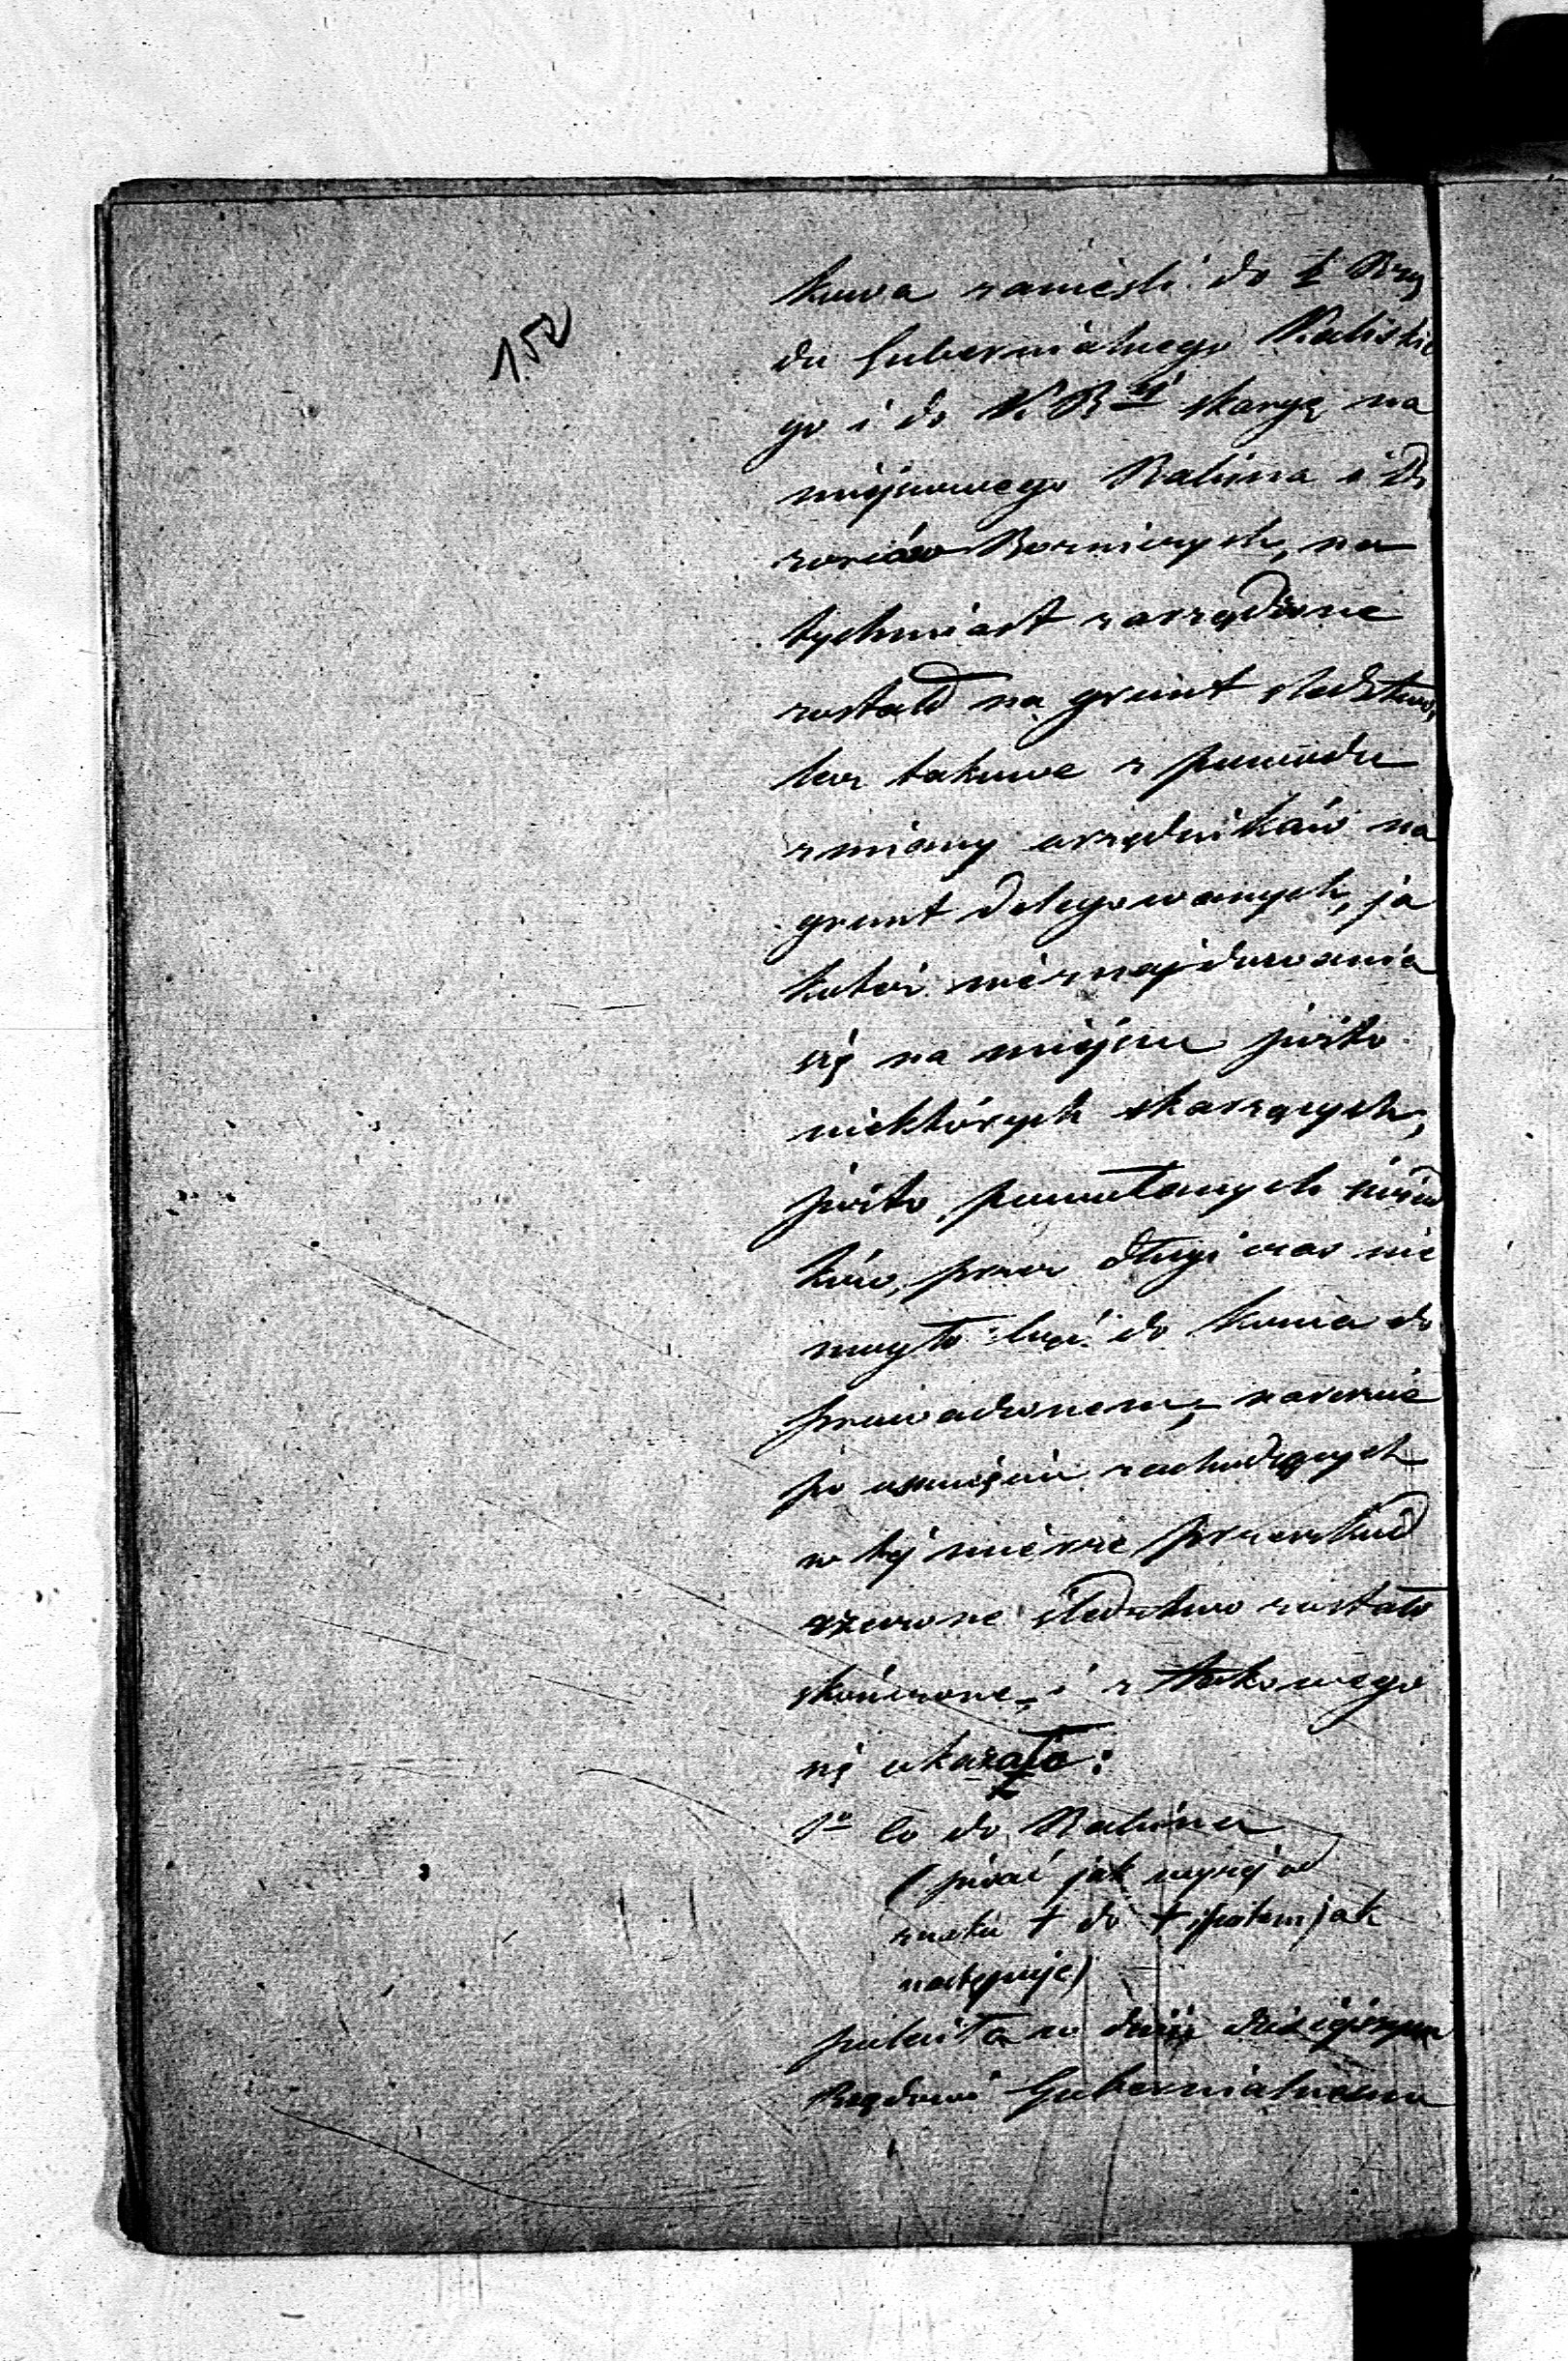 152
kowa zanieśli do Rzą
du Gubernialnego Kaliskie
go i do K R skargę na
miejscowego Rabina i Do
zorców Boznicznych, na
tychmiast zarządzone
zostało na grunt śledztwo,
lecz takowe z powodu
zmiany urzędników na
grunt delegowanych, ja
koteż nieznajdowania
się na miejscu już to
niektórych skarżących,
już to powołanych świad
ków, przez długi czas nie
mogło być do końca do
prowadzonem; nareszcie
po usunięciu zachodzących
w tej mierze przeszkód
rzeczone śledztwo zostało
skończone i z takowego
się okazało:
1o Co do Rabina
(pisać jak wyżej od
znaku + do + potem jak
następuje)
poleciła w dniu dzisiejszym
Rządowi Gubernialnemu